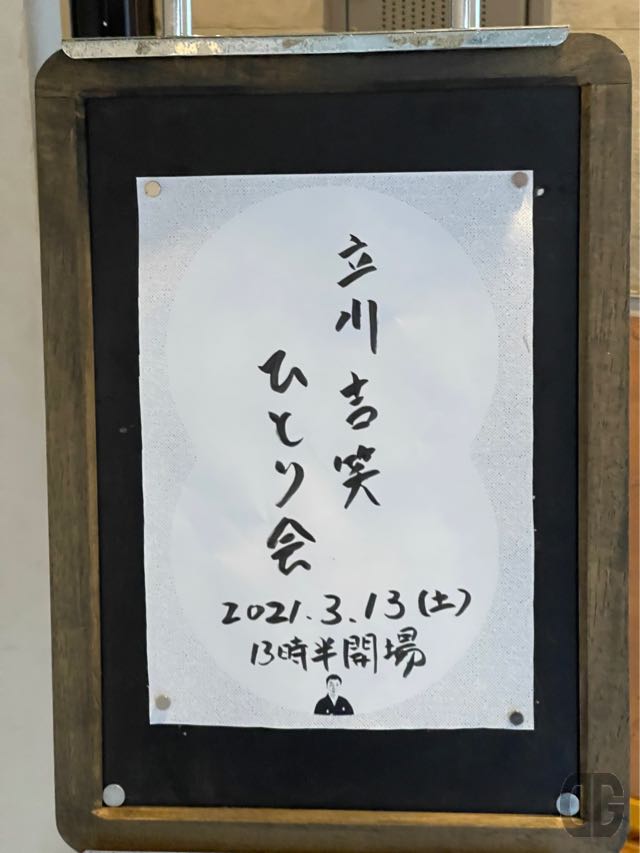 立川吉笑
ひとり会
2021.3.13(土)
13時半開場
DG